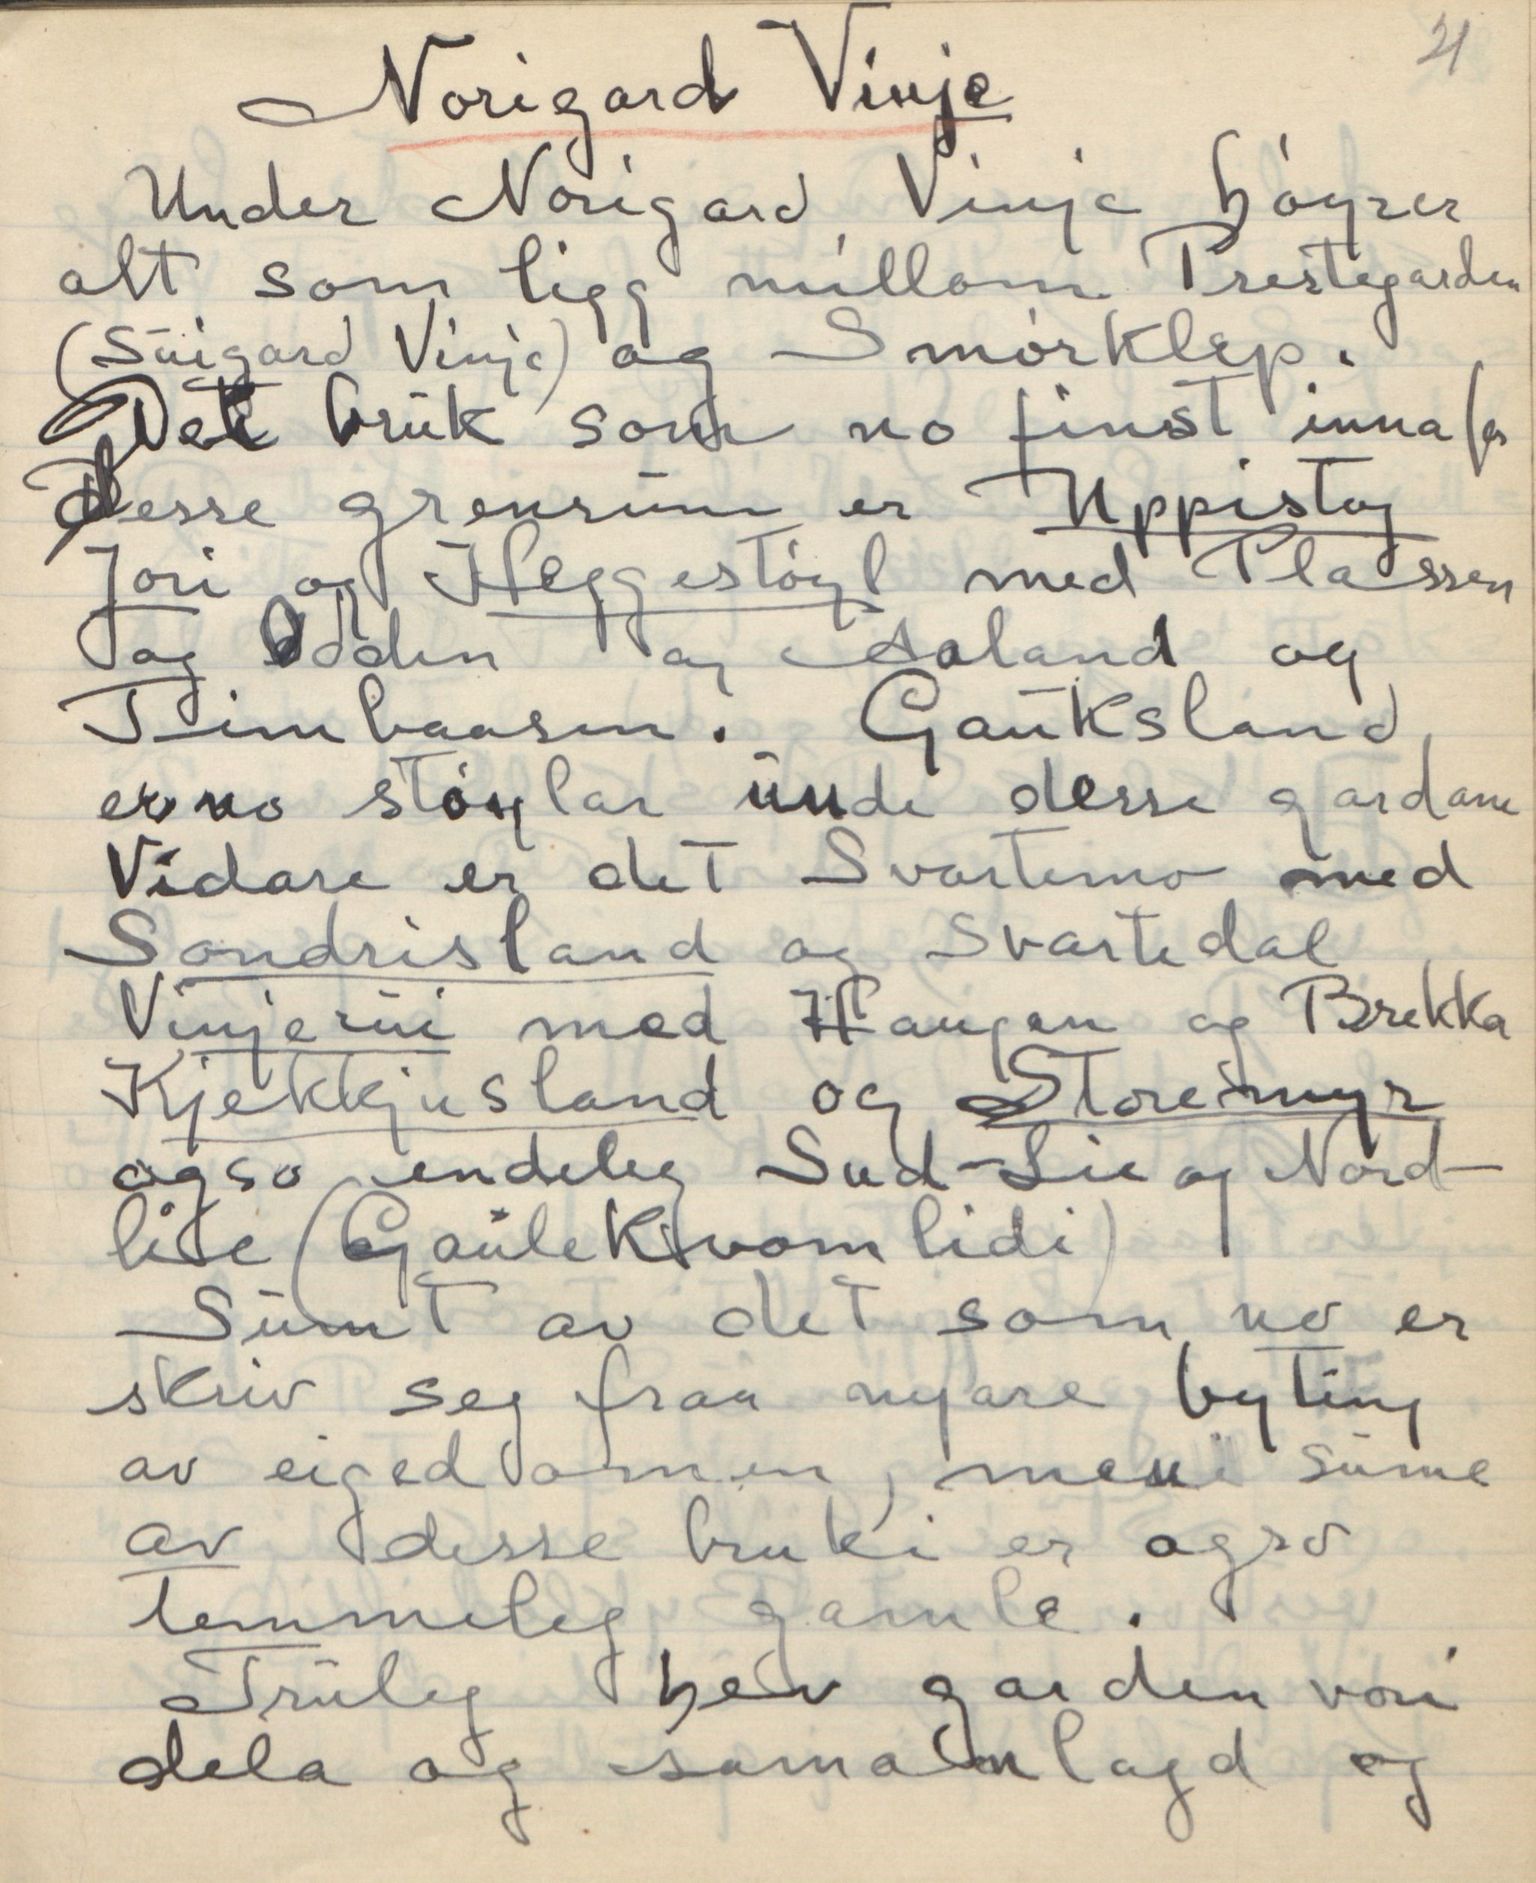 21
Norigard Vinje
Under Norigard Vinje høyrer
alt som ligg millom Prestegarden
(Suigard Vinje) og Smørklep.
Det bruk som no finst innafor
desse grensum er Uppistog
Jori og Heggestøyl med Plassen
og Odden og Aaland og
Timbaasen. Gauksland
er no støylar unde desse gardane
Vidare er det Svartemo med
Sondrisland og Svartedal
Vinjerui med Haugen og Brekka
Kjekkjusland og Storemyr
ogso endeleg Sud-Lie og Nord-
lie (Gaulekvomlidi)
Sumt av det som no er
skriv seg fraa nyare byting
av eigedomen, men sume
av desse bruki er ogso
temmeleg gamle.
Truleg hev garden vori
dela og samanlagd og